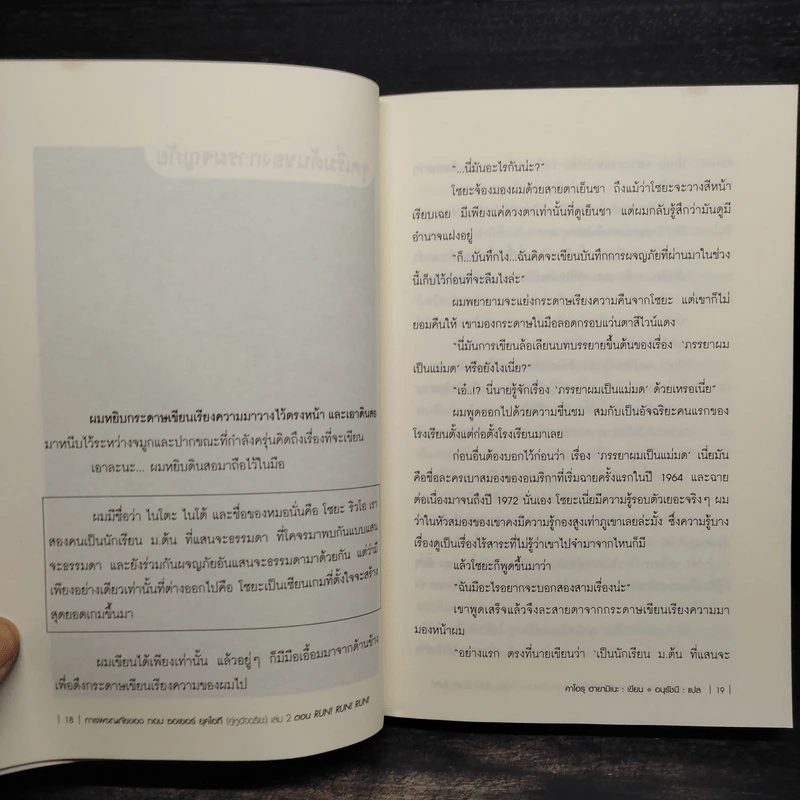 ผมหยิบกระดาษเขียนเรียงความมาวางไว้ตรงหน้า และเอาดินสอ
มาหนีบไว้ระหว่างจมูกและปากขณะที่กำลังครุ่นคิดถึงเรื่องที่จะเขียน
เอาละนะ... ผมหยิบดินสอมาถือไว้ในมือ
ผมมีชื่อว่า ไนโตะ ไนโต้ และชื่อของหมอนั่นคือ โซยะ ริวโอ เรา
สองคนเป็นนักเรียน ม.ต้น ที่แสนจะธรรมดา ที่โคจรมาพบกันแบบแสน
จะธรรมดา และยังร่วมกันผจญภัยอันแสนจะธรรมดามาด้วยกัน แต่ว่ามี
เพียงอย่างเดียวเท่านั้นที่ต่างออกไปคือ โซยะเป็นเซียนเกมที่ตั้งใจจะสร้าง
สุดยอดเกมขึ้นมา
ผมเขียนได้เพียงเท่านั้น แล้วอยู่ๆ ก็มีมือเอื้อมมาจากด้านข้าง
เพื่อดึงกระดาษเขียนเรียงความของผมไป
| 18 | การผจญภัยของ ทอม ซอเยอร์ ยุคไอที (คู่หูอัจฉริยะ) เล่ม 2 ตอน RUN!! RUN! RUN!
"...นี่มันอะไรกันน่ะ?"
โซยะจ้องมองผมด้วยสายตาเย็นชา ถึงแม้ว่าโซยะจะวางสีหน้า
เรียบเฉย มีเพียงแค่ดวงตาเท่านั้นที่ดูเย็นชา แต่ผมกลับรู้สึกว่ามันดูมี
อำนาจแฝงอยู่
"ก็...บันทึกไง...ฉันคิดจะเขียนบันทึกการผจญภัยที่ผ่านมาในช่วง
นี้เก็บไว้ก่อนที่จะลืมไงล่ะ"
ผมพยายามจะแย่งกระดาษเรียงความคืนจากโซยะ แต่เขาก็ไม่
ยอมคืนให้ เขามองกระดาษในมือลอดกรอบแว่นตาสีไวน์แดง
"นี่มันการเขียนล้อเลียนบทบรรยายขึ้นต้นของเรื่อง 'ภรรยาผม
เป็นแม่มด' หรือยังไงเนี่ย?"
"เอ๋..!? นี่นายรู้จักเรื่อง 'ภรรยาผมเป็นแม่มด' ด้วยเหรอเนี่ย"
ผมพูดออกไปด้วยความชื่นชม สมกับเป็นอัจฉริยะคนแรกของ
โรงเรียนตั้งแต่ก่อตั้งโรงเรียนมาเลย
ก่อนอื่นต้องบอกไว้ก่อนว่า เรื่อง 'ภรรยาผมเป็นแม่มด' เนี่ยมัน
คือชื่อละครเบาสมองของอเมริกาที่เริ่มฉายครั้งแรกในปี 1964 และฉาย
ต่อเนื่องมาจนถึงปี 1972 นั่นเอง โซยะเนี่ยมีความรู้รอบตัวเยอะจริงๆ ผม
ว่าในหัวสมองของเขาคงมีความรู้กองสูงเท่าภูเขาเลยล่ะมั้ง ซึ่งความรู้บาง
เรื่องดูเป็นเรื่องไร้สาระที่ไม่รู้ว่าเขาไปจำมาจากไหนก็มี
แล้วโซยะก็พูดขึ้นมาว่า
"ฉันมีอะไรอยากจะบอกสองสามเรื่องน่ะ"
เขาพูดเสร็จแล้วจึงละสายตาจากกระดาษเขียนเรียงความมา
มองหน้าผม
"อย่างแรก ตรงที่นายเขียนว่า 'เป็นนักเรียน ม.ต้น ที่แสนจะ
คาโอรุ ฮายามิเนะ : เขียน • อนุรัชนี : แปล | 19 |